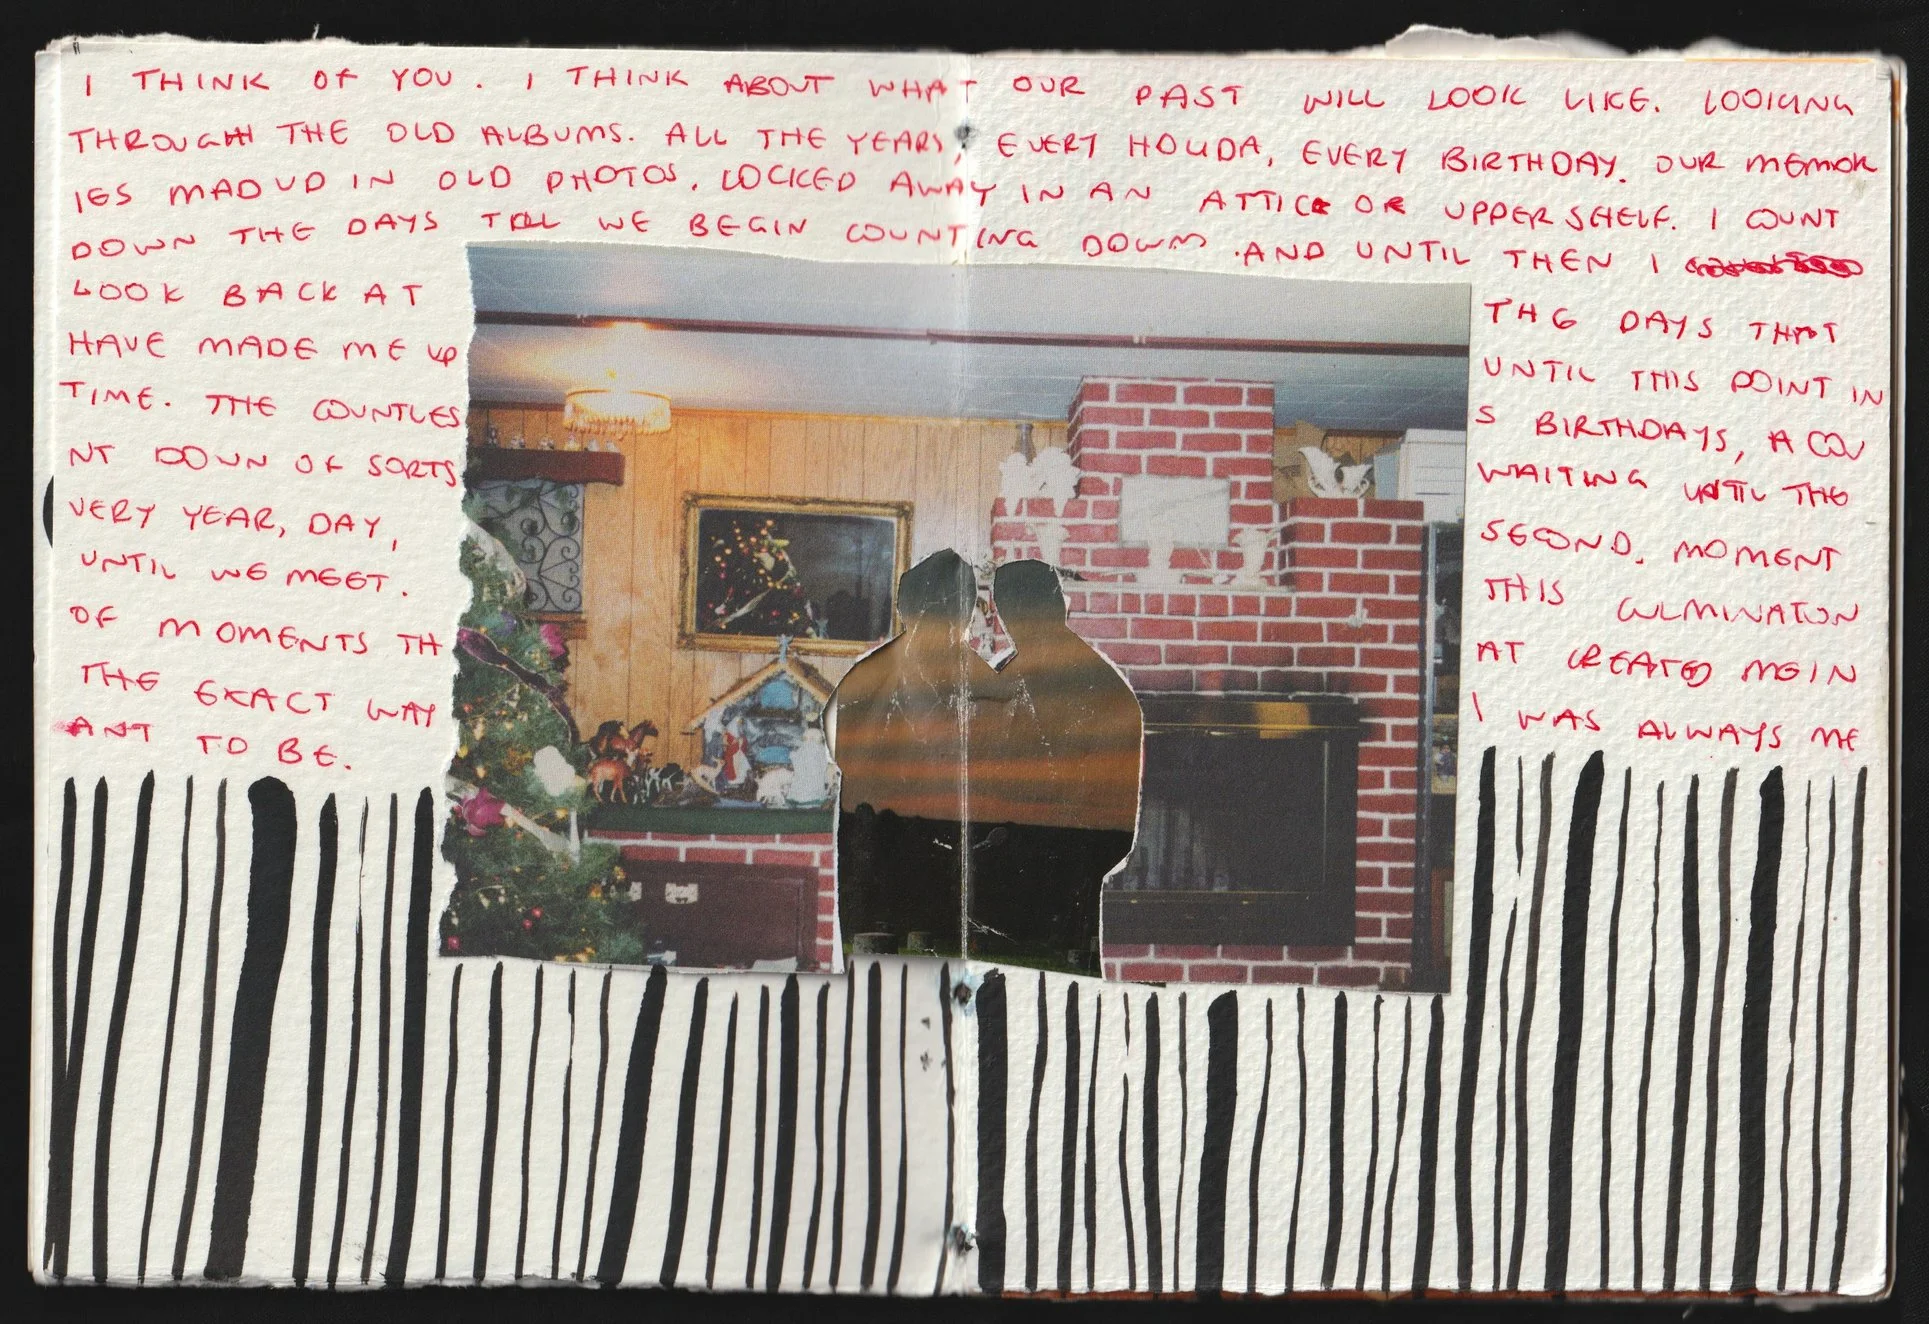 I THINK OF YOU. I THINK ABOUT WHAT OUR PAST WILL LOOK LIKE. LOOKING
THROUGH THE OLD ALBUMS. ALL THE YEARS, EVERY HOLIDA, EVERY BIRTHDAY. OUR MEMOR
IES MADUD IN OLD PHOTOS, LOCKED AWAY IN AN ATTIC OR UPPER SHELF. I COUNT
DOWN THE DAYS TILL WE BEGIN COUNTING DOWN. AND UNTIL THEN I
LOOK BACK AT THE DAYS THAT
HAVE MADE ME UP UNTIL THIS POINT IN
TIME. THE COUNTLES S BIRTHDAYS, A COU
NT DOWN OF SORTS WAITING UNTIL THE
VERY YEAR, DAY, SECOND, MOMENT
UNTIL WE MEET. THIS CULMINATION
OF MOMENTS TH AT CREATED ME IN
THE EXACT WAY I WAS ALWAYS ME
ANT TO BE.